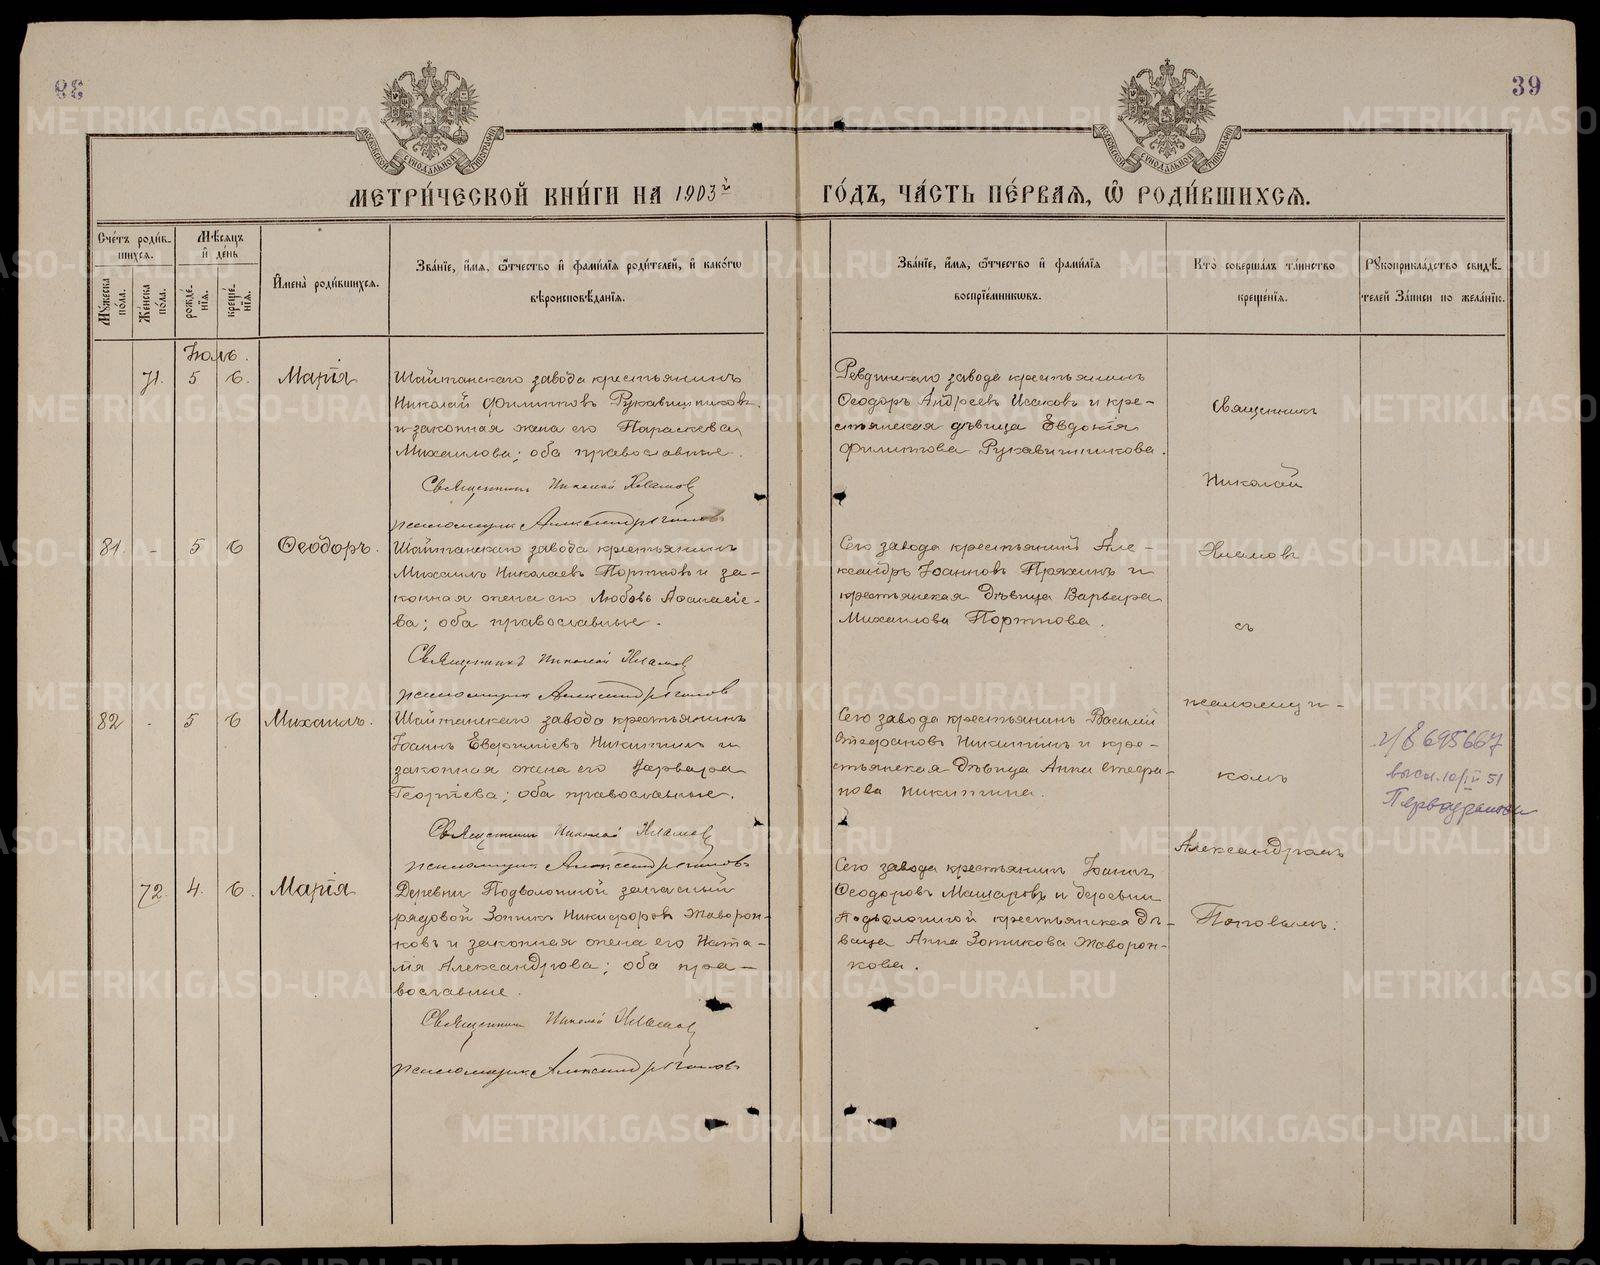 39
МЕТРИ́ЧЕСКОЙ КНИ́ГИ НА 1903й ГО́ДЪ, ЧА́СТЬ ПЕ́РВАѦ, Ѡ РОДИ́ВШИХСѦ.
Сче́тъ роди́в-
шихсѧ.
Мѹжеска по́ла.
Же́нска по́ла.
Мѣ́сѧцъ
и҆ де́нь
рожде́-
нїѧ.
креще́-
нїѧ.
И҆мена̀ роди́вшихсѧ.
Зва́нїе, и҆́мѧ, ѻ҆́тчество и҆ фами́лїѧ роди́телей, и҆ како́гѡ
вѣроисповѣ́данїѧ.
Зва́нїе, и҆́мѧ, ѻ҆́тчество и҆ фами́лїѧ
воспрїе́мникѡвъ.
Кто̀ соверша́лъ та́инство
креще́нїѧ.
Рꙋкоприкла́дство свидѣ́-
телей За́писи по жела́нїю.
Іюль.
71. 5 6. Марія
Шайтанскаго завода крестьянинъ
Николай Филиповъ Рукавишниковъ
и законная жена его Параскева
Михаилова; оба православные.
Священникъ Николай
псаломщик Александръ Поповъ
Ревдинскаго завода крестьянинъ
Ѳеодоръ Андреевъ Исаковъ и кре-
стьянская дѣвица Евдокія
Филиппова Рукавишникова.
81. - 5 6 Ѳеодоръ.
Шайтанскаго завода крестьянинъ
Михаилъ Николаевъ Портновъ и за-
конная жена его Любовь Аѳанасіе-
ва; оба православные.
Священникъ Николай
псаломщик Александръ Поповъ
Сего завода крестьянинъ Але-
ксандръ Іоанновъ Пряхинъ и
крестьянская дѣвица Варвара
Михаилова Портнова.
82 - 5 6 Михаилъ.
Шайтанскаго завода крестьянинъ
Іоаннъ Никитинъ и
законная жена его Варвара
Георгіева; оба православные.
Священникъ Николай
псаломщик Александръ Поповъ
Сего завода крестьянинъ Василій
Стефановъ Никитинъ и кре-
стьянская дѣвица Анна Стефа-
нова Никитина.
72. 4. 6. Марія
Деревни Подволошной запасный
рядовой Зотикъ Никифоровъ Жаворон-
ковъ и законная жена его Ната-
лія Александрова; оба пра-
вославные.
Священникъ Николай
псаломщик Александръ Поповъ
Сего завода крестьянинъ Іоаннъ
Ѳеодоровъ Машаровъ и деревни
Подволошной крестьянская дѣ-
вица Анна Зотикова Жаворон-
кова.
Священникъ
Николай
съ
псаломщи-
комъ
Александромъ
Поповымъ:
695667
METRIKI.GASO-URAL.RU